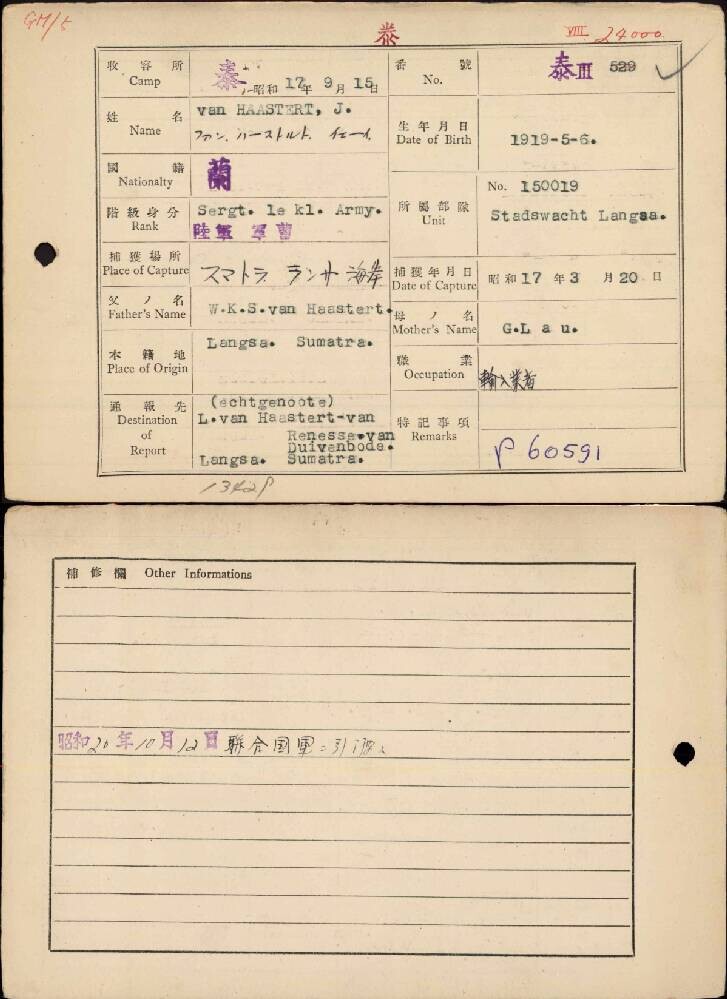 GM/5
泰
VIII. 24000
收容所 泰 昭和 17年 9月 15日
Camp
番號 泰III 529
No.
姓名 van HAASTERT, J.
Name ファン、ハーストルト
生年月日
Date of Birth 1919-5-6.
國籍 蘭
Nationalty
階級身分 Sergt. 1e kl. Army.
Rank 陸軍 軍曹
所屬部隊 No. 150019
Unit Stadswacht Langsa.
捕獲場所
Place of Capture スマトラ ランサ 海岸
捕獲年月日 昭和 17 年 3 月 20 日
Date of Capture
父ノ名 W.K.S.van Haastert.
Father's Name
母ノ名 G.L a u.
Mother's Name
本籍地 Langsa. Sumatra.
Place of Origin
職業
Occupation 輸入業者
通報先 (echtgenoote)
Destination L.van Haastert-van
of Renesse.van
Duivenbode.
Report Langsa. Sumatra.
特記事項
Remarks P 60591
1342P
補修欄 Other Informations
昭和20年10月12日 聯合国軍ニ引渡ス